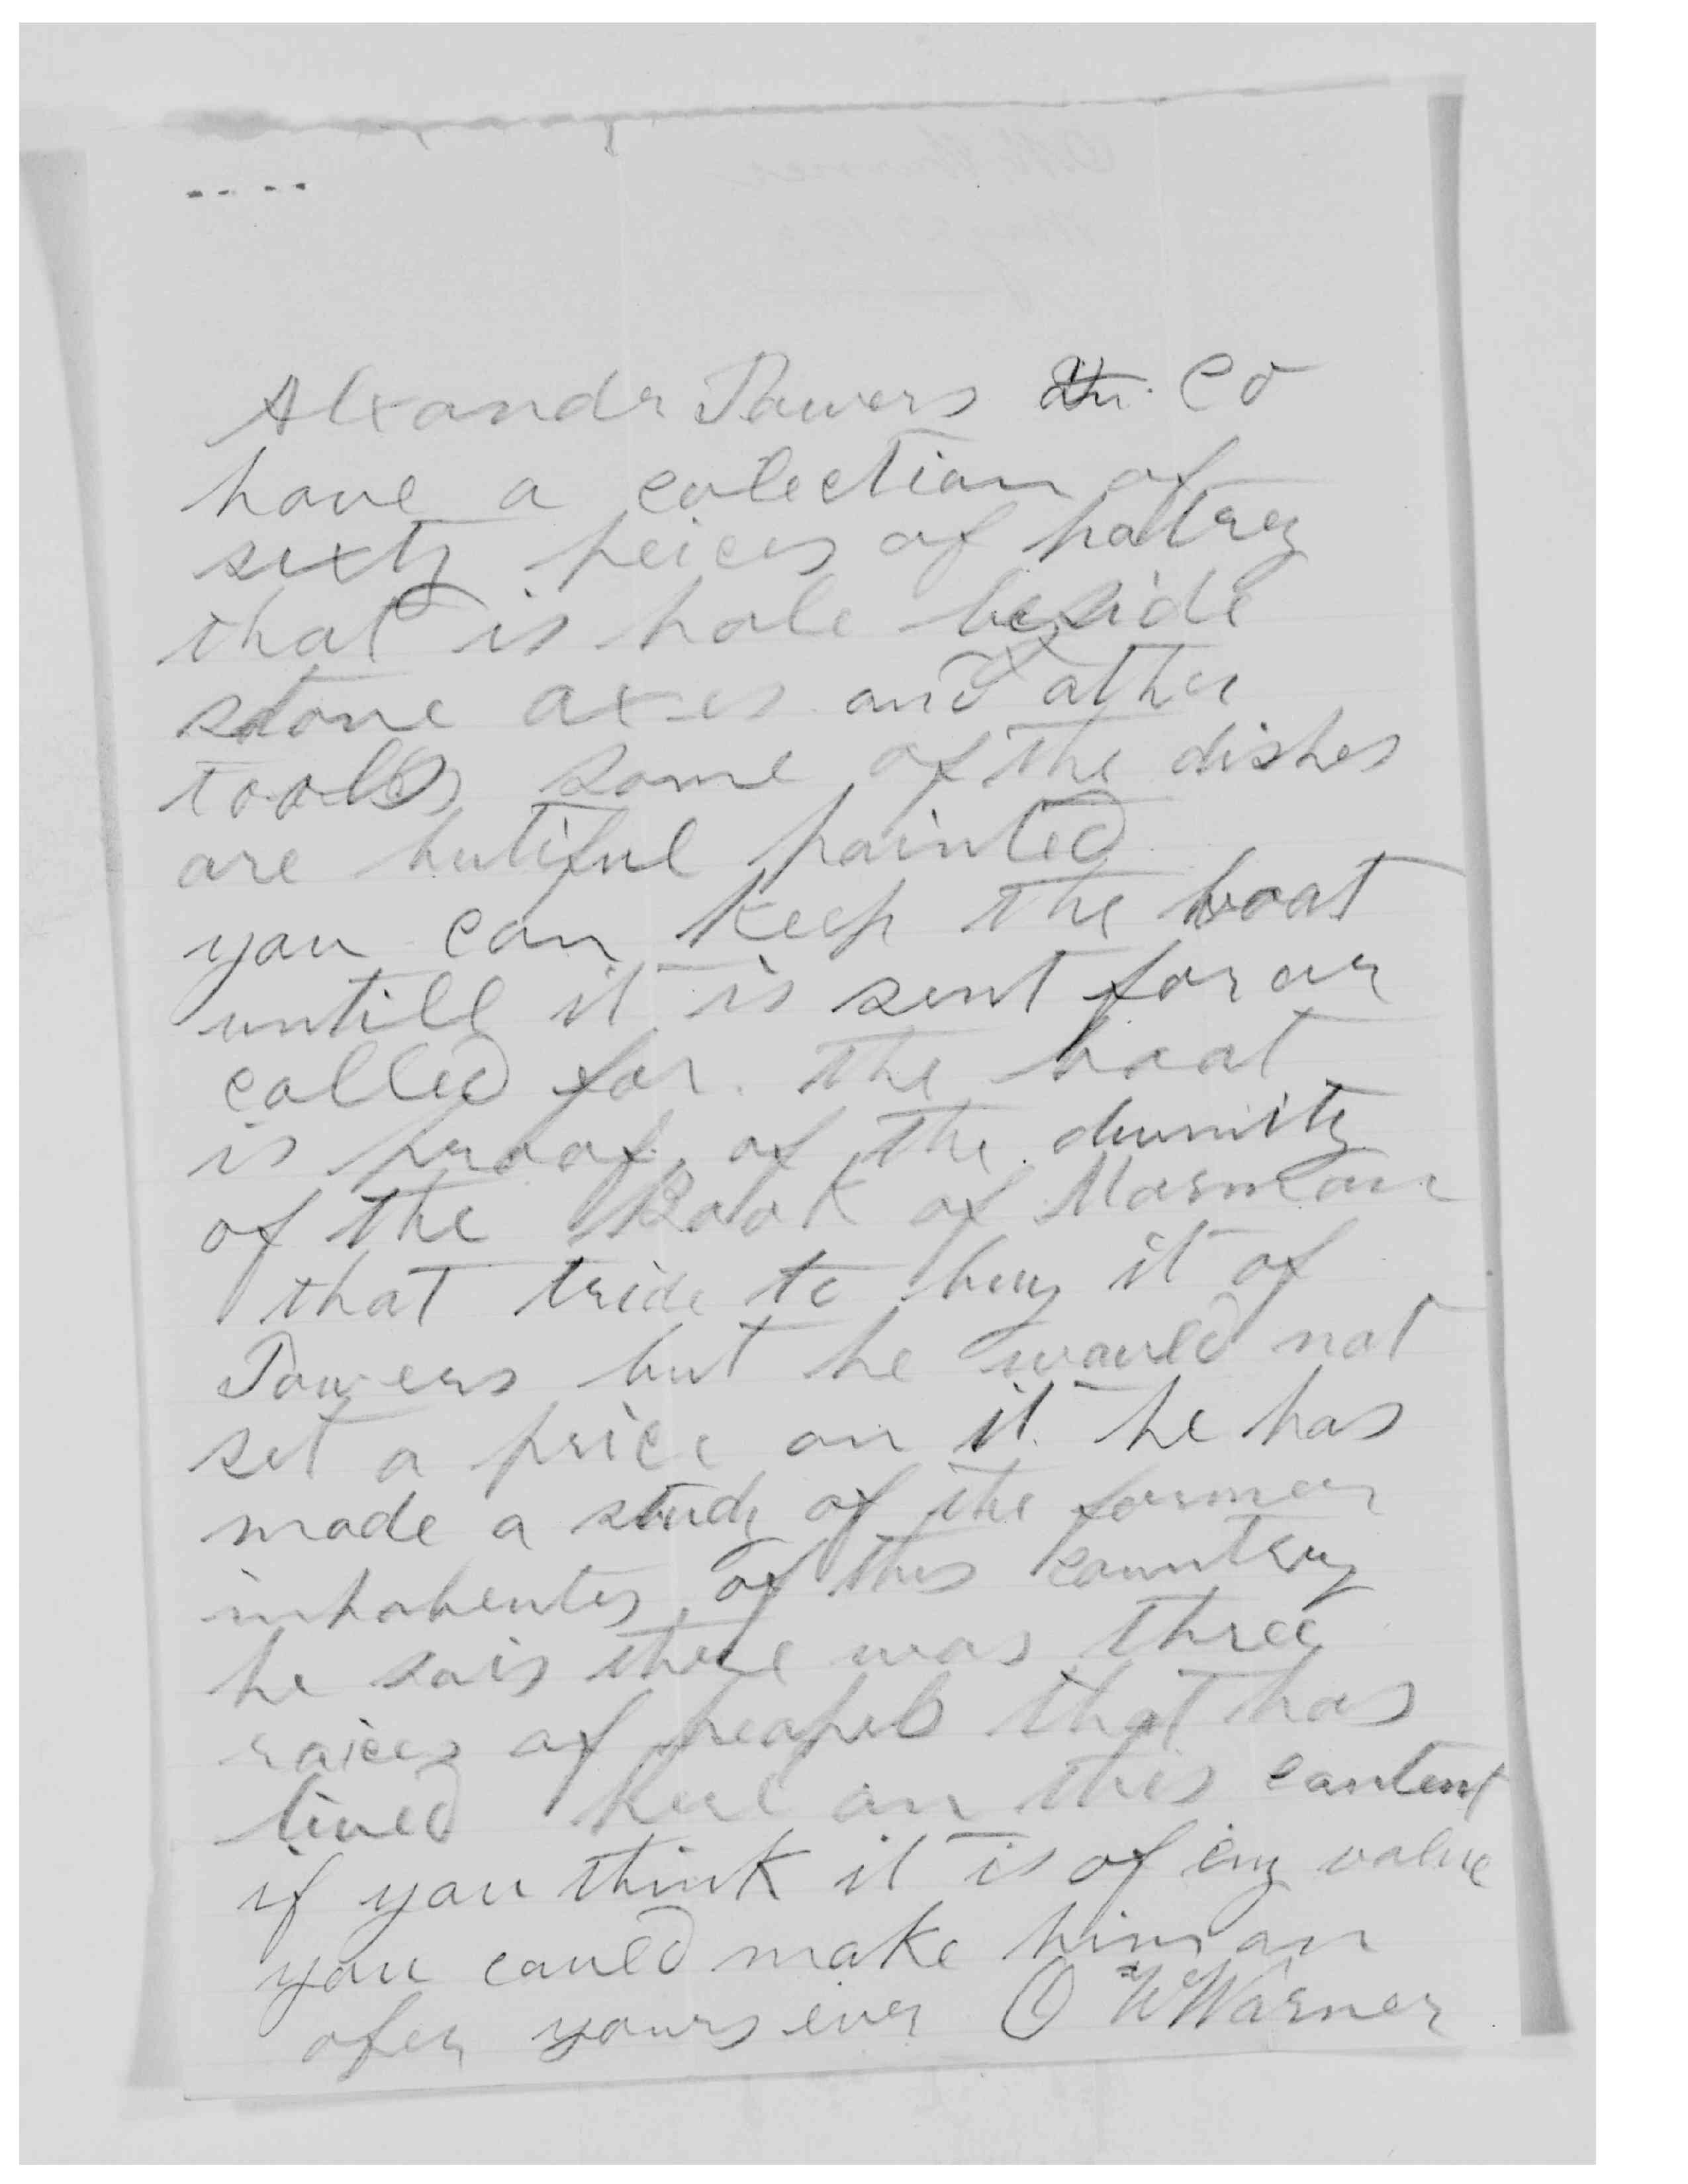 Alxandr Powers Co
have a colection of
sixty peices of potrey
that is hole beside
stone axes and other
tools some of the dishes
are butiful painted
you can keep the boat
untill it is sent for or
called for. the boat
is proof of the
of the Book of Mormon
that tride to buy it of
Powers but he would not
set a price on it he has
made a study of the former
inhabentes of this country
he sais there was three
raices of peapels that has
lived heer on this content
if you think it is of eny value
you could make him an
ofer yours ever O W Warner